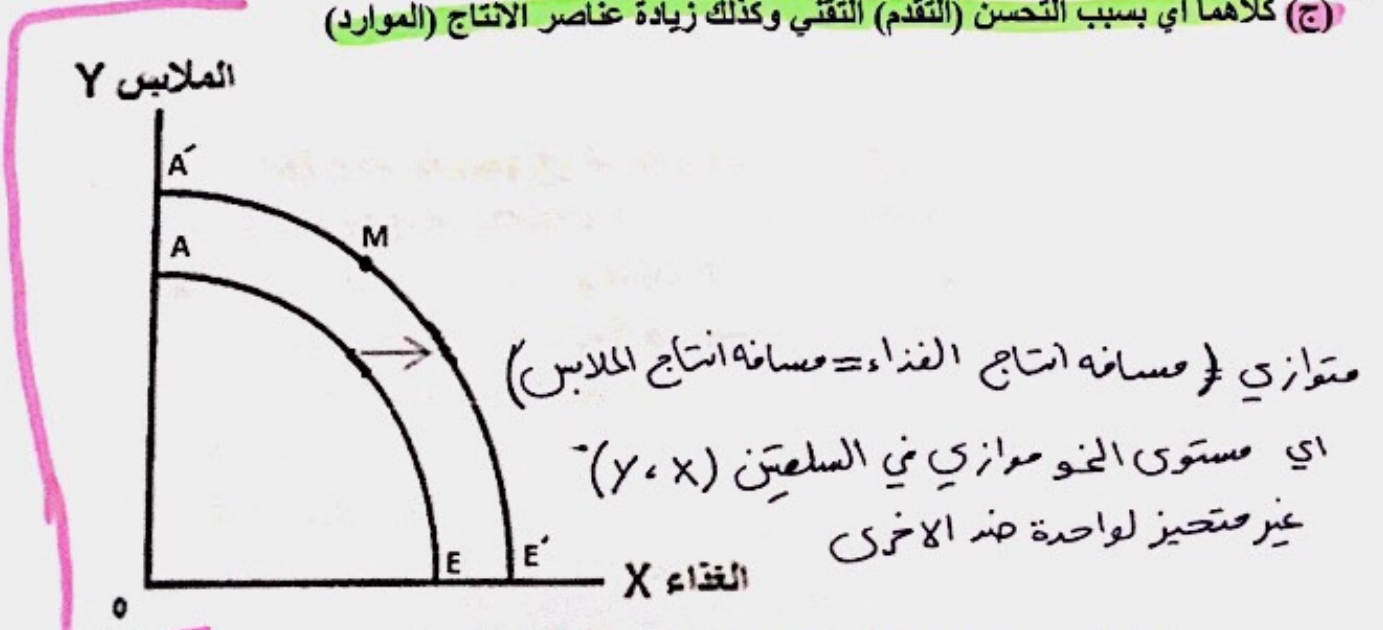 (ج) كلاهما أي بسبب التحسن (التقدم) التقني وكذلك زيادة عناصر الانتاج (الموارد)
الملابس Y
A´
M
A
متوازي (مسافه انتاج الغذاء = مسافه انتاج الملابس)
اي مستوى النمو موازي في السلعتين (X ، Y)
غير متحيز لواحدة ضد الاخرى
E
E´
الغذاء X
0